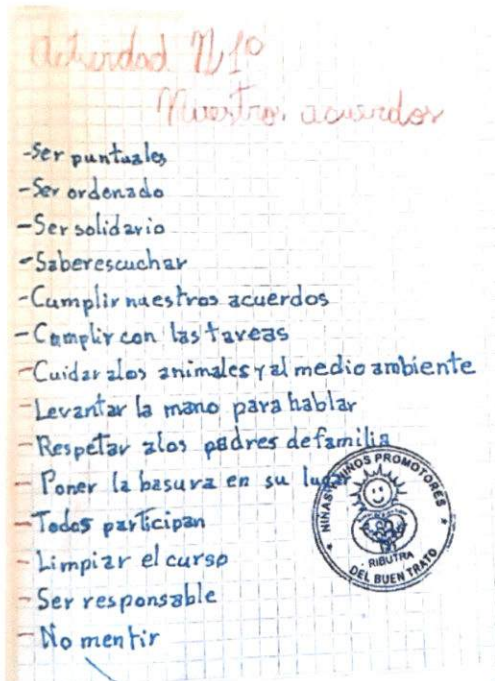 Actividad N 1º
Nuestros acuerdos
-Ser puntuales
-Ser ordenado
-Ser solidario
-Saber escuchar
-Cumplir nuestros acuerdos
-Cumplir con las tareas
-Cuidar a los animales y al medio ambiente
-Levantar la mano para hablar
-Respetar a los padres de familia
-Poner la basura en su lugar
-Todos participan
-Limpiar el curso
-Ser responsable
-No mentir
NIÑAS Y NIÑOS PROMOTORES
RIBUTRA
DEL BUEN TRATO